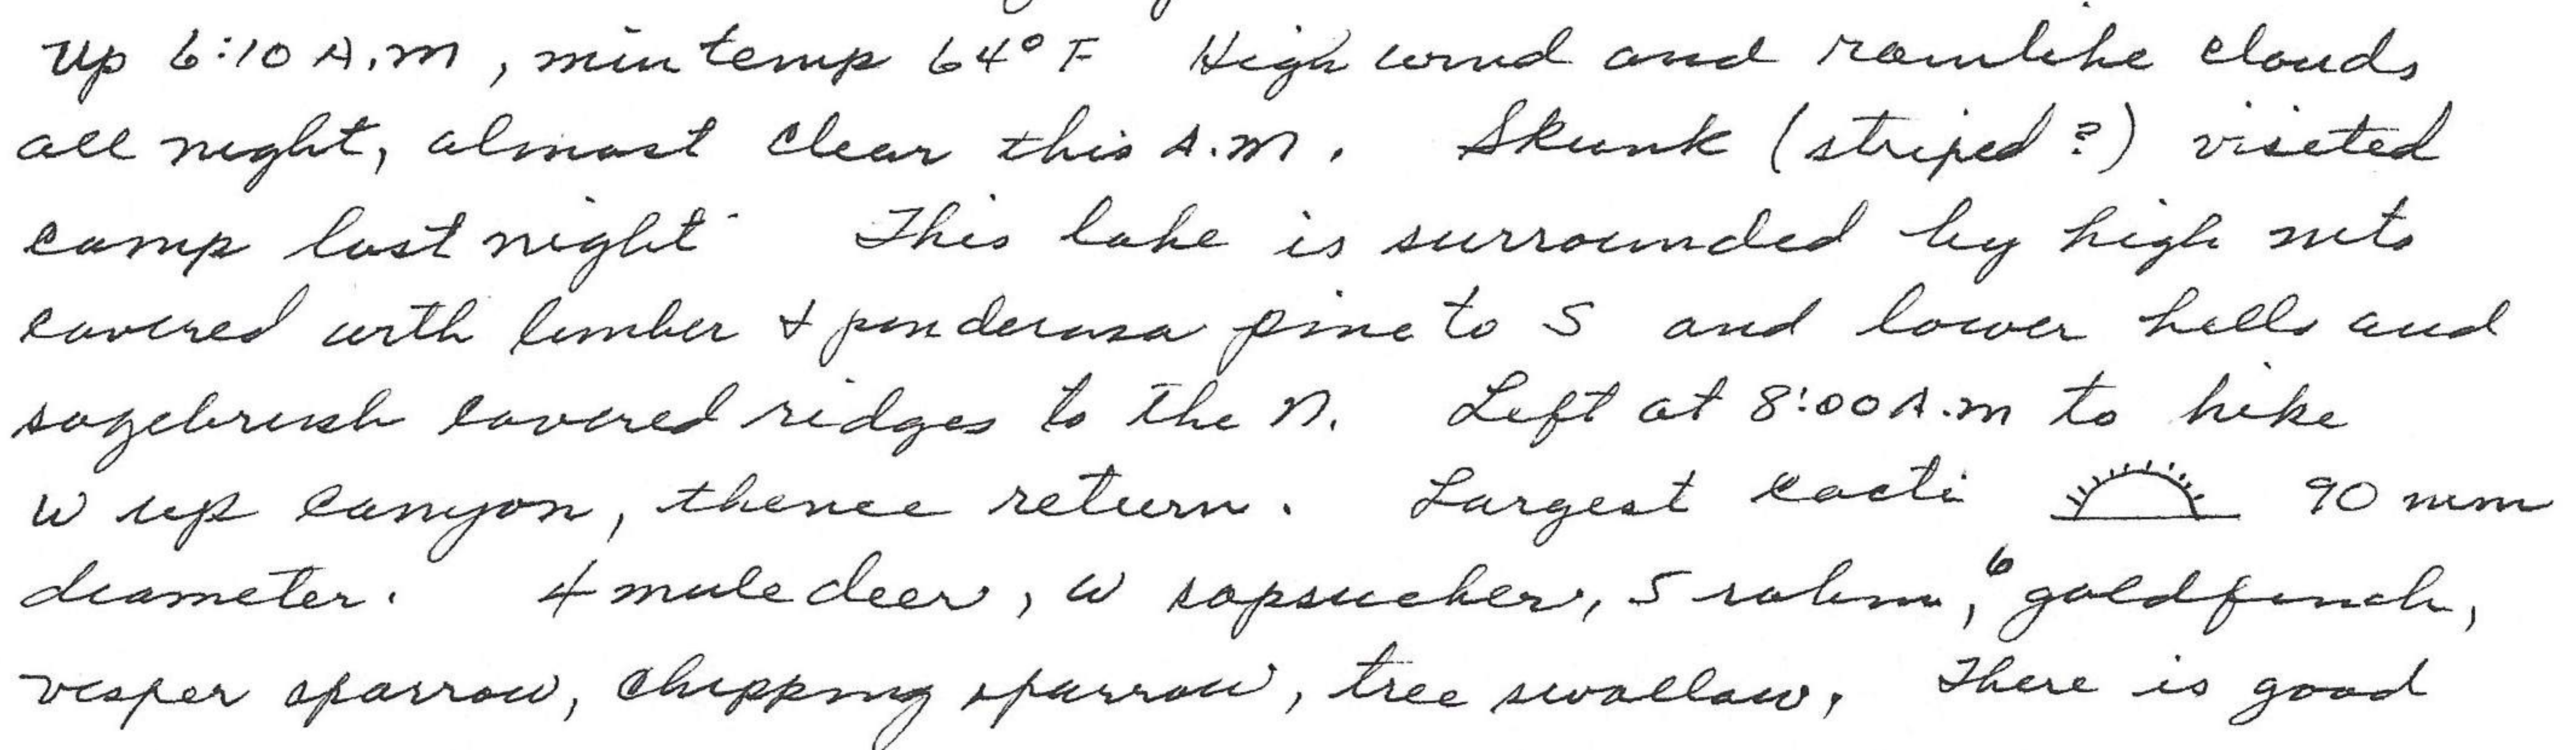 Up 6:10 A.M, min temp 64° F High wind and rainlike clouds
all night, almost clear this A.M. Skunk (striped?) visited
camp last night This lake is surrounded by high mts
covered with limber & ponderosa pine to S and lower hills and
sagebrush covered ridges to the N. Left at 8:00 A.M to hike
W up canyon, thence return. Largest cacti 90 mm
diameter. 4 mule deer, W sapsucker, 5 robins, 6 goldfinch,
vesper sparrow, chipping sparrow, tree swallow. There is good